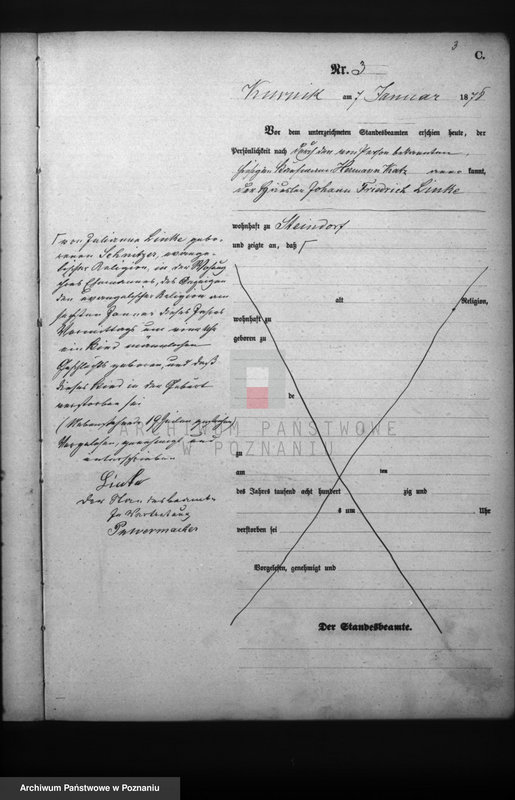 3
C.
Nr. 3
Kurnik am 7 Januar 1878
Vor dem unterzeichneten Standesbeamten erschien heute, der
Persönlichkeit nach durch den von Person bekannten
Kaufmann Hermann Katz kannt,
der Häusler Johann Friedrich Linke
wohnhaft zu Steindorf
und zeigte an, daß
von Julianna Linke gebo-
renen Schnitzer, evange-
lischer Religion, in der Wohnung
ihres Ehemannes, des Anzeigen-
den evangelischer Religion am
Januar dieses Jahres
Vormittags um
ein Kind männlichen
Geschlechts geboren, und daß
dieses Kind in der Geburt
verstorben sei
(Nebenstehende 19 Zeilen gestrichen)
Vorgelesen, genehmigt und
unterschrieben
Linke
Der Standesbeamte
In Vertretung
alt Religion,
wohnhaft zu
geboren zu
de
zu
am ten
des Jahrs tausend acht hundert zig und
s um Uhr
verstorben sei
Vorgelesen, genehmigt und
Der Standesbeamte.
ARCHIWUM PAŃSTWOWE
W POZNANIU
Archiwum Państwowe w Poznaniu